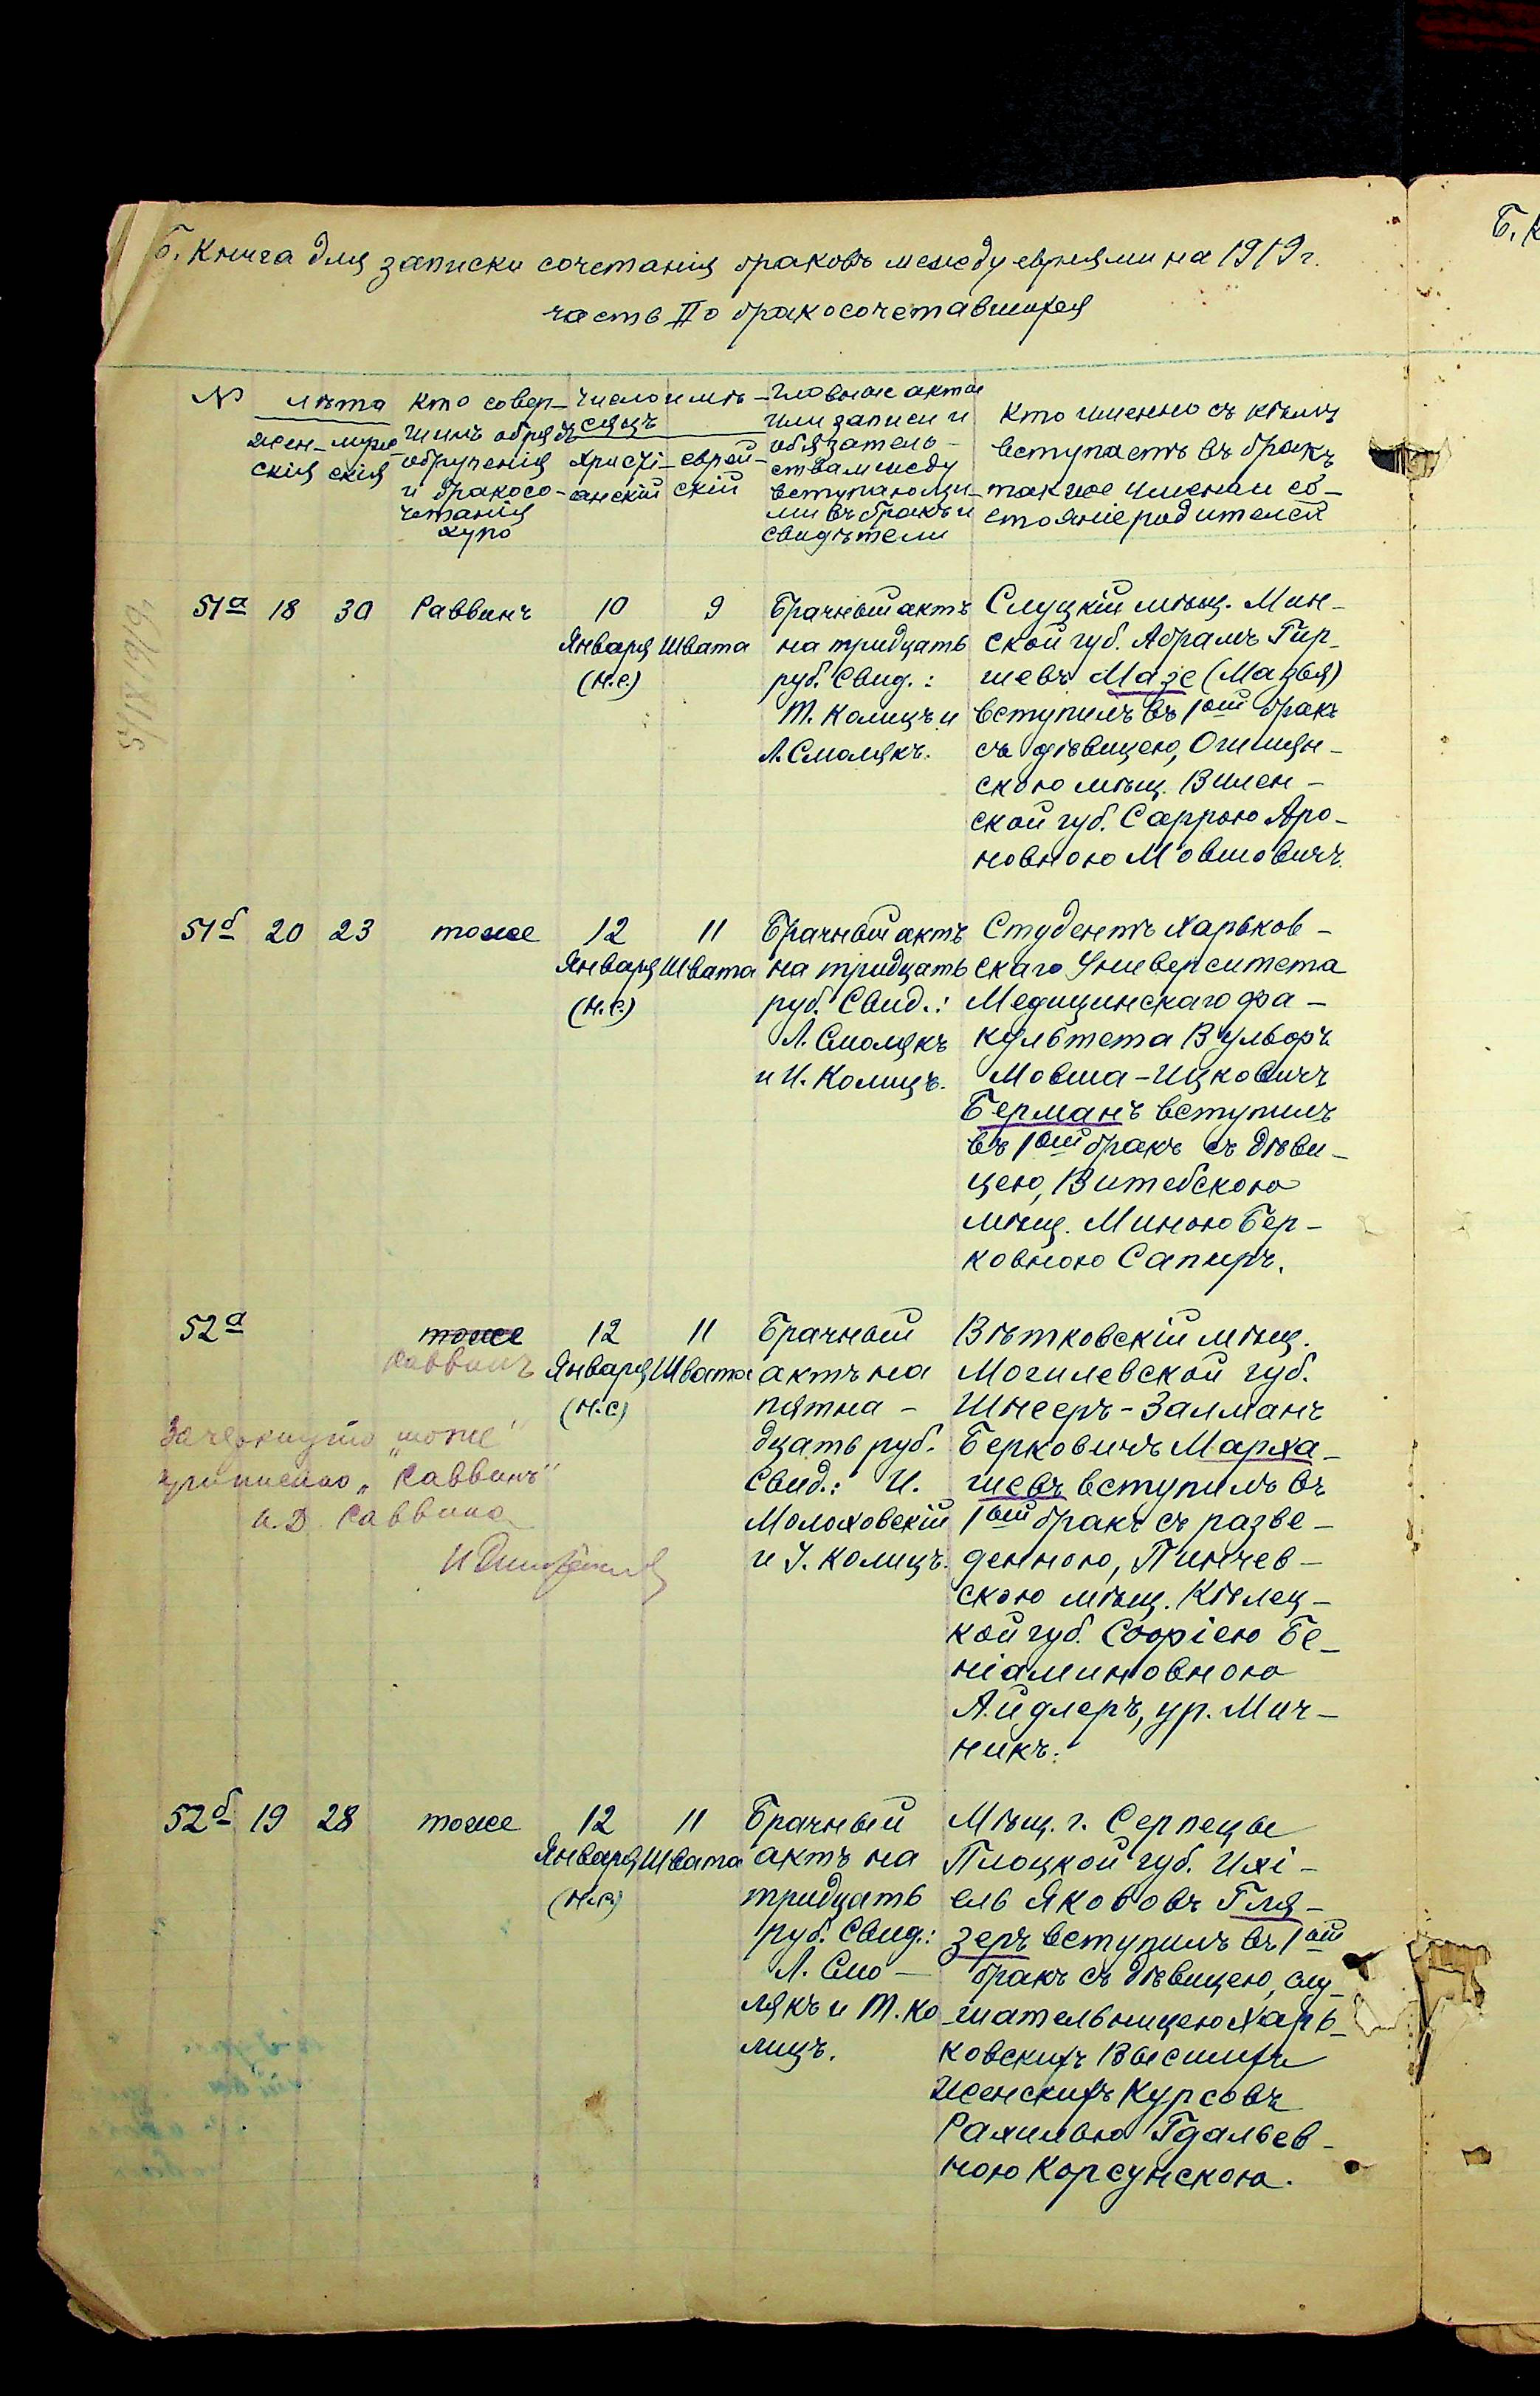 Б. Книга для записки сочетанія браковъ между евреями на 1919 г.
часть II о бракосочетавшихся
№
лѣта
Жен-
скія
муж-
скія
Кто совер-
шилъ обрядъ
обрученія
и бракосо-
четанія
хупо
Число и мѣ-
сяцъ
Христі-
анскій
еврей-
скій
Главные акты
или записи и
обязатель-
ства между
вступающи-
ми въ бракъ и
свидѣтели
Кто именно съ кѣмъ
вступаетъ въ бракъ
также имена и со-
стояніе родителей
51а 18 30 Раввинъ 10 9
Января Швата
(н.с.)
Брачный актъ
на тридцать
руб. Свид.:
Т. Колицъ и
Л. Смолякъ.
Слуцкій мѣщ. Мин-
ской губ. Абрамъ Гир-
шевъ Мазе (Мазья)
вступилъ въ 1ый бракъ
съ дѣвицею, Ошмян-
скою мѣщ. Вилен-
ской губ. Саррою Аро-
новною Мовшовичъ.
51б 20 23 тоже 12 11
Января Швата
(н.с.)
Брачный актъ
на тридцать
руб. Свид.:
Л. Смолякъ
и И. Колицъ.
Студентъ Харьков-
скаго Университета
Медицинскаго фа-
культета Вульфъ
Мовша-Ицковичъ
Берманъ вступилъ
въ 1ый бракъ съ дѣви-
цею, Витебскою
мѣщ. Миною Бер-
ковною Сапиръ.
52а тоже 12 11
Раввинъ
Января Швата
(н.с)
Зачеркнуто „тоже"
приписано „Раввинъ"
и.д. Раввина
Брачный
актъ на
пятна-
дцать руб.
Свид.: И.
Молоховскій
и У. Колицъ.
Вѣтковскій мѣщ.
Могилевской губ.
Шнееръ-Залманъ
Берковичъ Марха-
шевъ вступилъ въ
1ый бракъ съ разве-
денною, Пинчев-
скою мѣщ. Кѣлец-
кой губ. Софіею Бе-
ніаминовною
Айдлеръ, ур. Мич-
никъ.
52б 19 28 тоже 12 11
Января Швата
(н.с.)
Брачный
актъ на
тридцать
руб. Свид.:
Л. Смо-
лякъ и Т. Ко
лицъ.
Мѣщ. г. Серпецы
Плоцкой губ. Ихі-
ель Яковъ Гля-
зеръ вступилъ въ 1ый
бракъ съ дѣвицею, слу-
шательницею Харь-
ковскихъ Высшихъ
Женскихъ Курсовъ
Рахилью Гдальев-
ною Корсунскою.
5/IX 1919.
Б. К